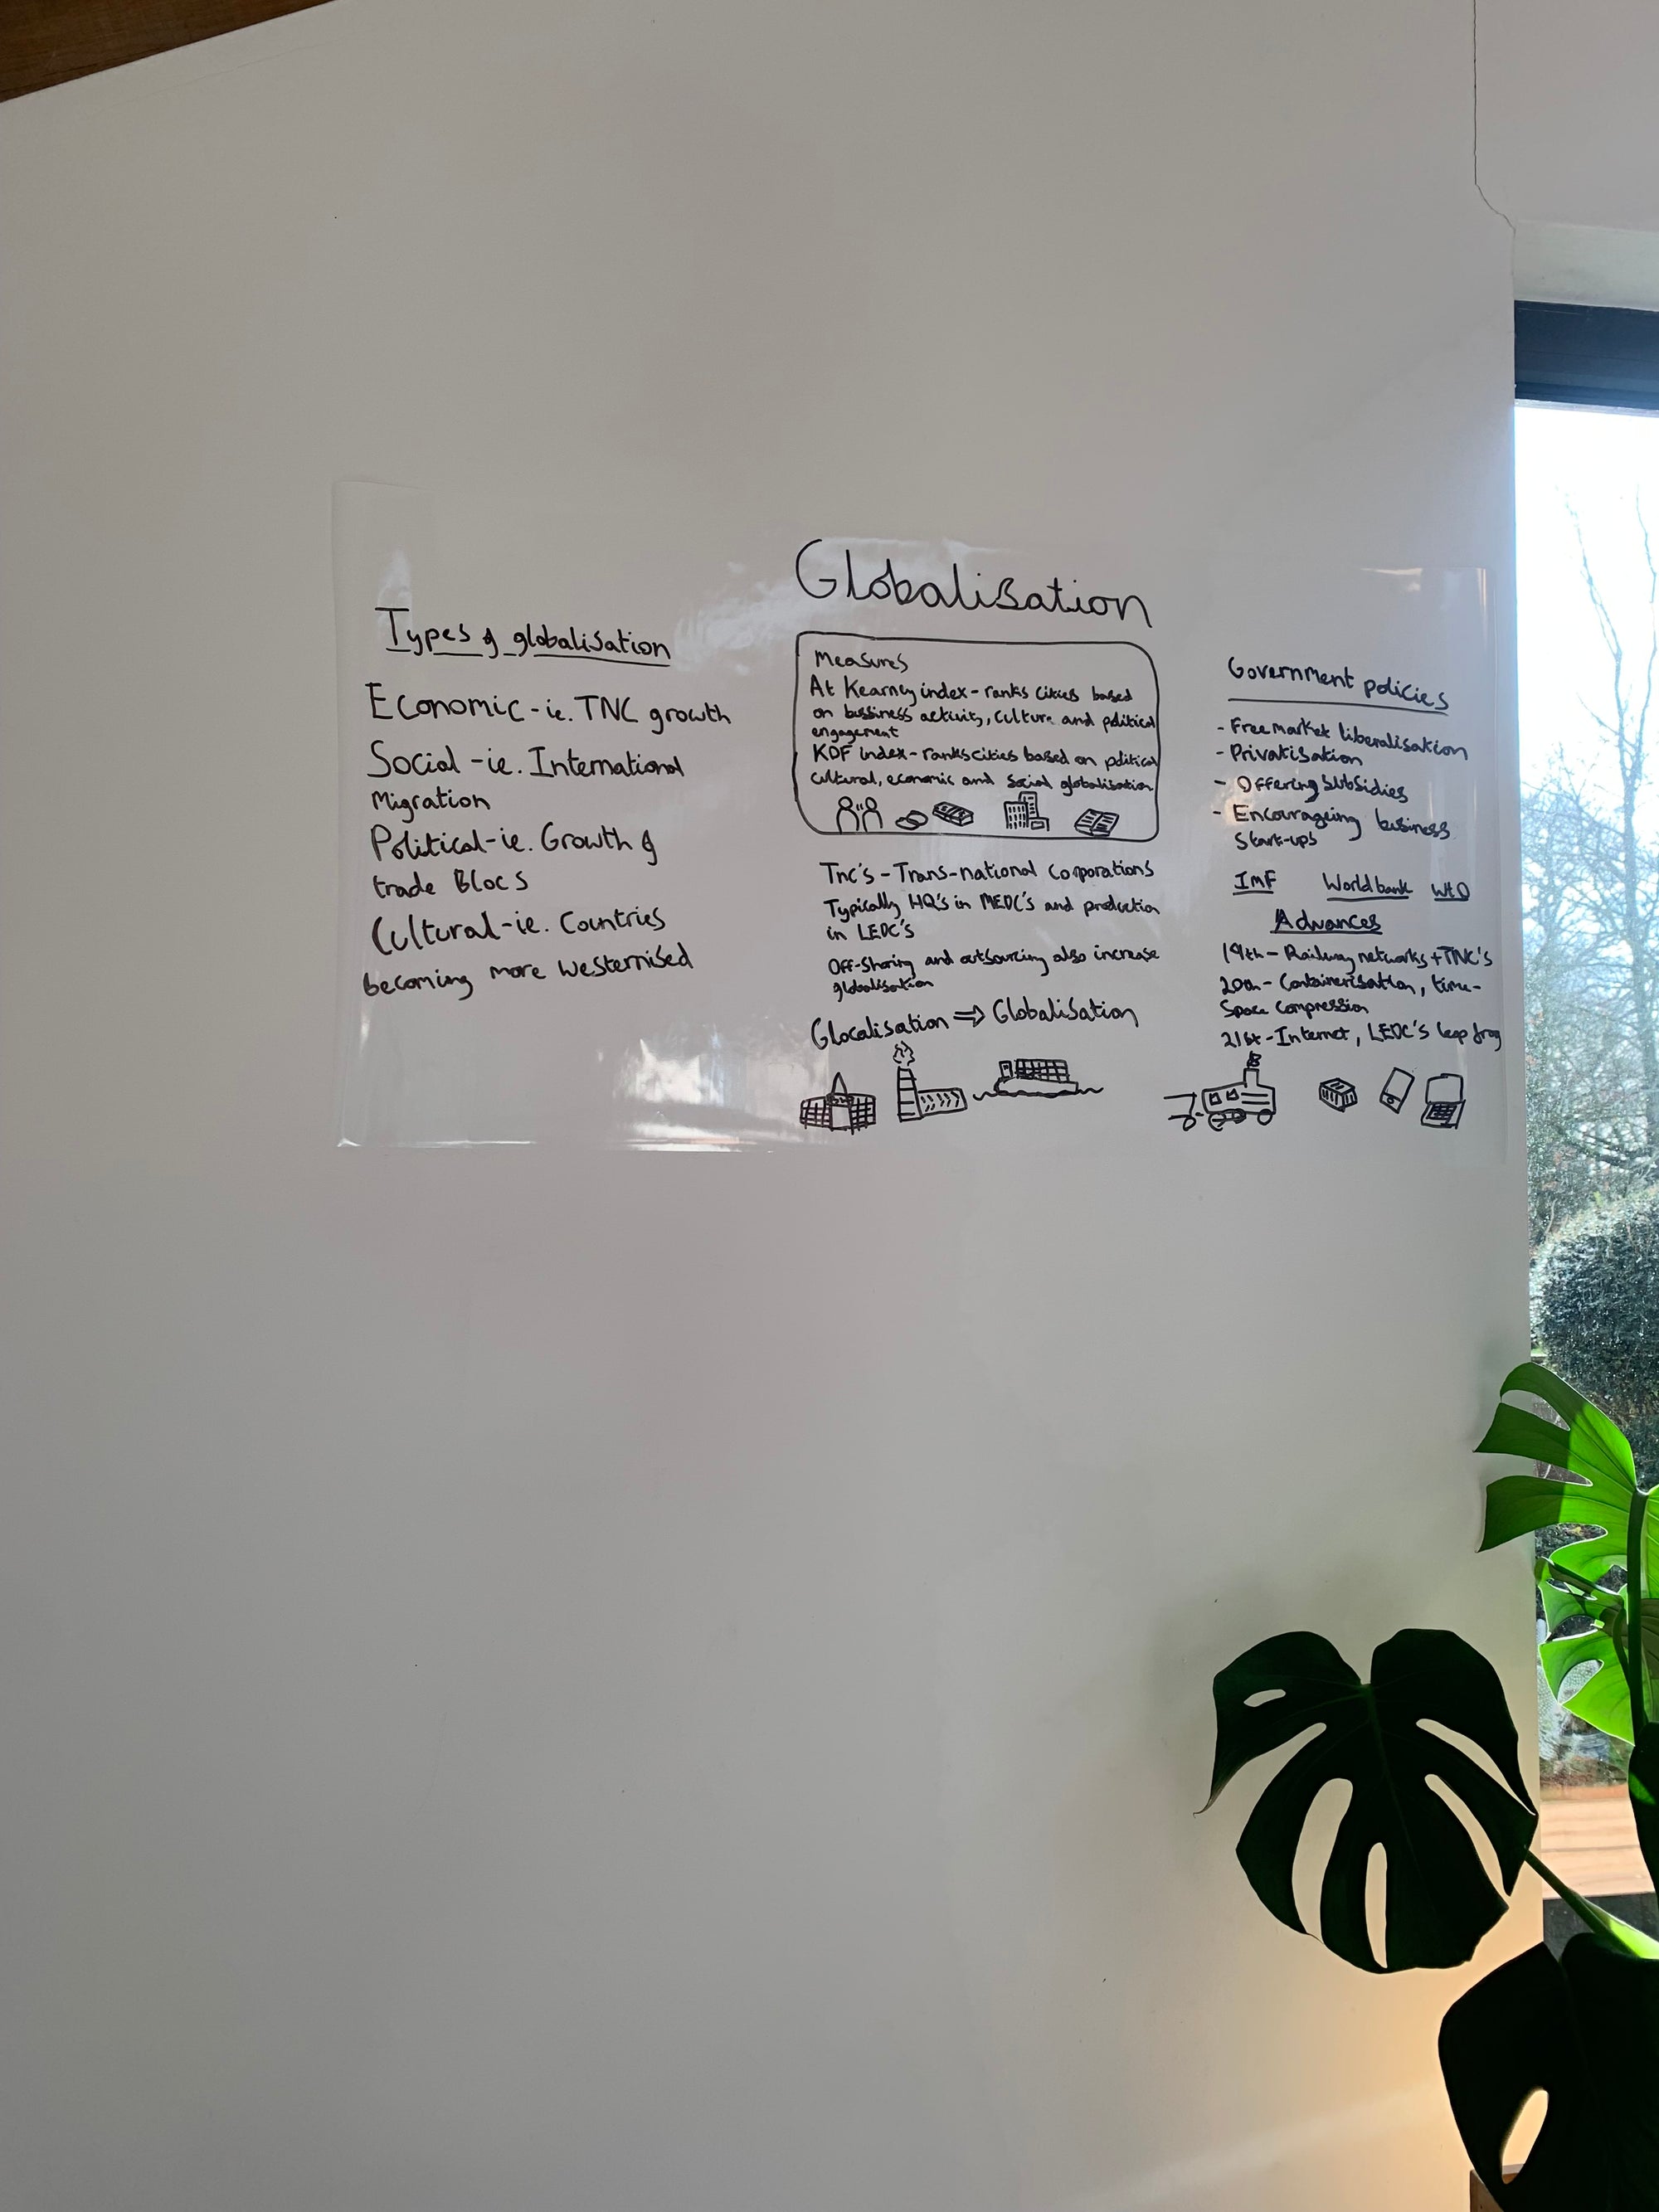 Globalisation
Types of globalisation
Economic - ie. TNC growth
Social - ie. International
Migration
Political - ie. Growth of
trade Blocs
Cultural - ie. Countries
becoming more westernised
Measures
At Kearney index - ranks cities based
on bussiness activity, culture and political
engagement
KOF index - ranks cities based on political
cultural, economic and social globalisation
Tnc's - Trans-national Corporations
Typically HQ's in MEDC's and production
in LEDC's
Off-Shoring and outsourcing also increase
globalisation
Glocalisation ⇒ Globalisation
Government policies
- Free market liberalisation
- Privatisation
- Offering subsidies
- Encourageing business
Start-ups
IMF World bank WtO
Advances
19th - Railway networks + TNC's
20th - Containerisation, time-
Space compression
21st - Internet, LEDC's leap frog